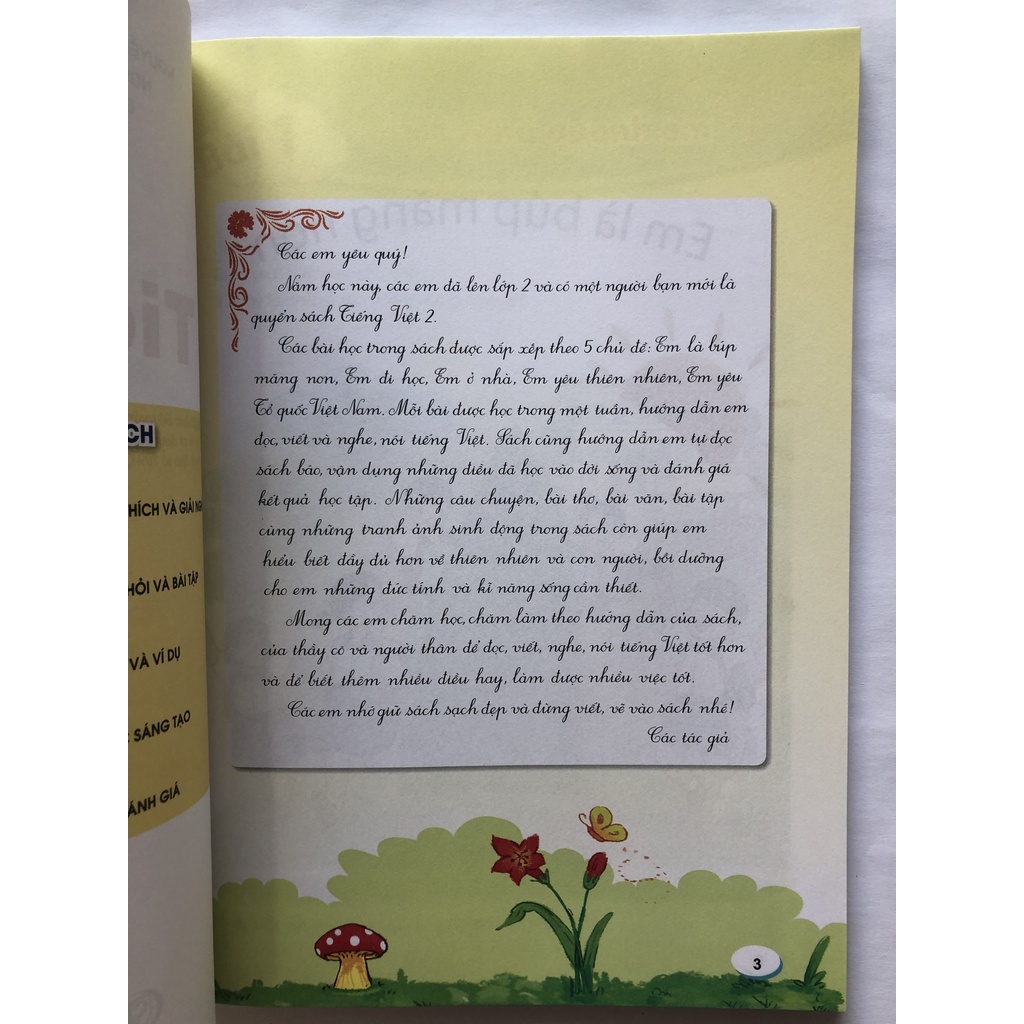 CH
HÍCH VÀ GIẢI NG
HỎI VÀ BÀI TẬP
VÀ VÍ DỤ
SÁNG TẠO
ÁNH GIÁ
Em là búp măng
Các em yêu quý!
Năm học này, các em đã lên lớp 2 và có một người bạn mới là
quyển sách Tiếng Việt 2.
Các bài học trong sách được sắp xếp theo 5 chủ đề: Em là búp
măng non, Em đi học, Em ở nhà, Em yêu thiên nhiên, Em yêu
Tổ quốc Việt Nam. Mỗi bài được học trong một tuần, hướng dẫn em
đọc, viết và nghe, nói tiếng Việt. Sách cũng hướng dẫn em tự đọc
sách báo, vận dụng những điều đã học vào đời sống và đánh giá
kết quả học tập. Những câu chuyện, bài thơ, bài văn, bài tập
cùng những tranh ảnh sinh động trong sách còn giúp em
hiểu biết đầy đủ hơn về thiên nhiên và con người, bồi dưỡng
cho em những đức tính và kĩ năng sống cần thiết.
Mong các em chăm học, chăm làm theo hướng dẫn của sách,
của thầy cô và người thân để đọc, viết, nghe, nói tiếng Việt tốt hơn
và để biết thêm nhiều điều hay, làm được nhiều việc tốt.
Các em nhớ giữ sách sạch đẹp và đừng viết, vẽ vào sách nhé!
Các tác giả
3